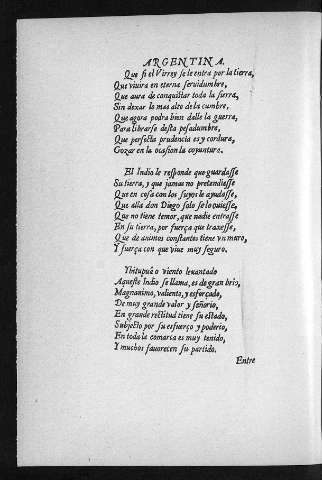 ARGENTINA.
Que si el Virrey se le entra por la tierra,
Que viuira en eterna seruidumbre,
Que aura de conquistar toda la sierra,
Sin dexar lo mas alto de la cumbre,
Que agora podra bien dalle la guerra,
Para librarse desta pesadumbre,
Que perfecta prudencia es y cordura,
Gozar en la ocasion la coyuntura.
El Indio le responde que guardasse
Su tierra, y que jamas no pretendiesse
Que en cosa con los suyos le ayudasse,
Que alla don Diego solo se lo quiesse,
Que no tiene temor, que nadie entrasse
En su tierra, por fuerça que traxesse,
Que de animos constantes tiene vn muro,
Y fuerça con que viue muy seguro.
Ybitupuè o viento leuantado
Aqueste Indio se llama, es de gran brio,
Magnanimo, valiente, y esforçado,
De muy grande valor y señorio,
En grande rectitud tiene su estado,
Subjecto por su esfuerço y poderio,
En toda la comarca es muy temido,
Y muchos fauorecen su partido.
Entre